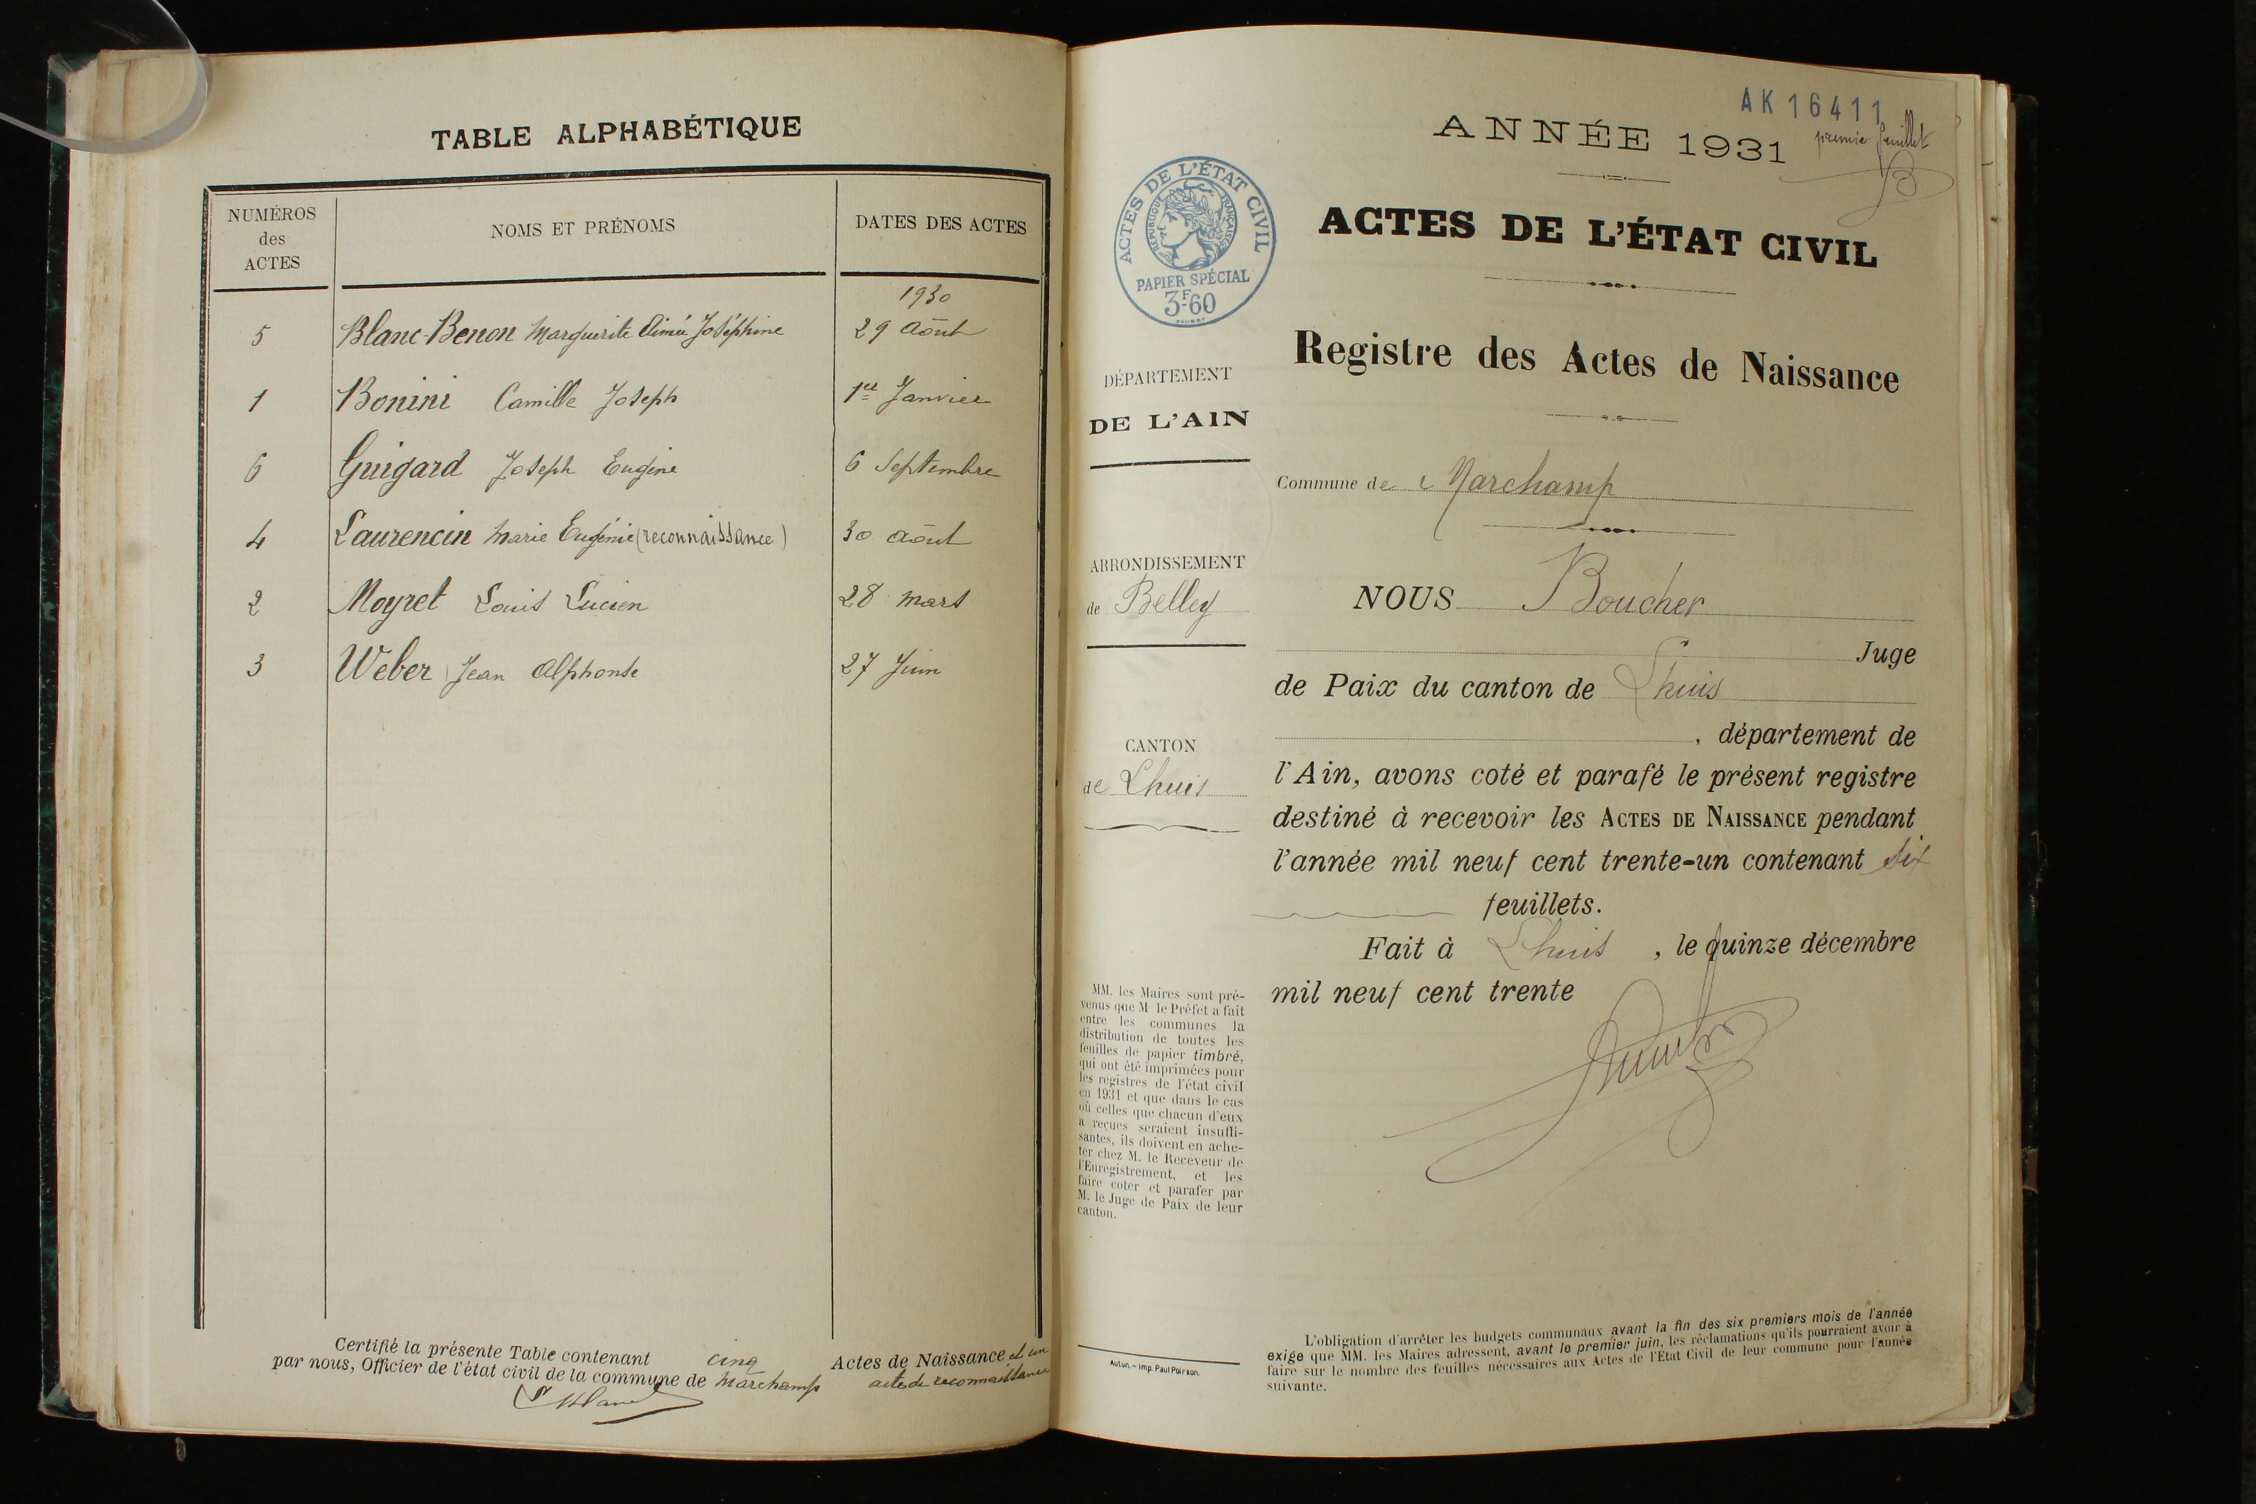 TABLE ALPHABÉTIQUE
NUMÉROS
des
ACTES
NOMS ET PRÉNOMS
DATES DES ACTES
1930
5 Blanc-Benon Marguerite Aimée Joséphine 29 Août
1 Bonini Camille Joseph 1er Janvier
6 Guigard Joseph Eugène 6 Septembre
4 Laurencin Marie Eugénie (reconnaissance) 30 août
2 Moyret Louis Lucien 28 mars
3 Weber Jean Alphonse 27 Juin
Certifié la présente Table contenant cinq Actes de Naissance et un
par nous, Officier de l'état civil de la commune de Marchamp acte de reconnaissance
AK 16411
ANNÉE 1931
premier feuillet
ACTES DE L'ÉTAT CIVIL
RÉPUBLIQUE FRANÇAISE
PAPIER SPÉCIAL
3F-60
ACTES DE L'ÉTAT CIVIL
Registre des Actes de Naissance
DÉPARTEMENT
DE L'AIN
Commune de Marchamp
ARRONDISSEMENT
de Belley
CANTON
de Lhuis
NOUS Boucher
Juge
de Paix du canton de Lhuis
, département de
l'Ain, avons coté et parafé le présent registre
destiné à recevoir les ACTES DE NAISSANCE pendant
l'année mil neuf cent trente-un contenant six
feuillets.
Fait à Lhuis , le quinze décembre
mil neuf cent trente
MM. les Maires sont pré-
venus que M le Préfet a fait
entre les communes la
distribution de toutes les
feuilles de papier timbré,
qui ont été imprimées pour
les registres de l'état civil
en 1931 et que dans le cas
où celles que chacun d'eux
a reçues seraient insuffi-
santes, ils doivent en ache-
ter chez M. le Receveur de
l'Enregistrement, et les
faire coter et parafer par
M. le Juge de Paix de leur
canton.
Autun. — Imp. Paul Poirson.
L'obligation d'arrêter les budgets communaux avant la fin des six premiers mois de l'année
exige que MM. les Maires adressent, avant le premier juin, les réclamations qu'ils pourraient avoir à
faire sur le nombre des feuilles nécessaires aux Actes de l'État Civil de leur commune pour l'année
suivante.